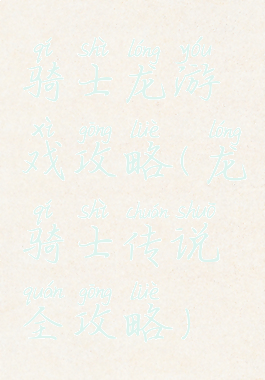 qí shì lóng yóu
骑士龙游
xì gōng lüè lóng
戏攻略(龙
qí shì zhuàn shuō
骑士传说
quán gōng lüè
全攻略)